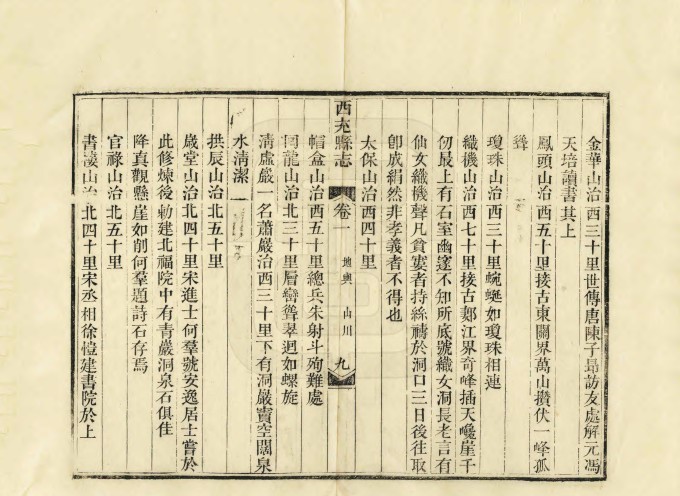 金華山治西三十里世傳唐陳子昻訪友處解元馮
天培讀書其上
鳳頭山治西五十里接古東關界萬山攢伏一峰孤
聳
瓊珠山治西三十里蜿蜒如瓊珠相連
織機山治西七十里接古鄭江界奇峰插天巉崖千
仞最上有石室幽邃不知所底號織女洞長老言有
仙女織機聲凡貧窭者持絲禱於洞口三日後往取
卽成絹然非孝義者不得也
太保山治西四十里
西充縣志 卷一 地輿 山川 九
帽盒山治西五十里總兵朱射斗殉難處
囘龍山治北三十里層巒聳翠迴如螺旋
淸虛巖一名蕭巖治西三十里下有洞巖竇空闊泉
水淸潔
拱辰山治北五十里
嚴堂山治北四十里宋進士何羣號安逸居士嘗於
此修煉後勅建北福院中有靑巖洞泉石俱佳
降眞觀縣崖如削何羣題詩石存焉
官祿山治北五十里
書淩山治北四十里宋丞相徐愷建書院於上